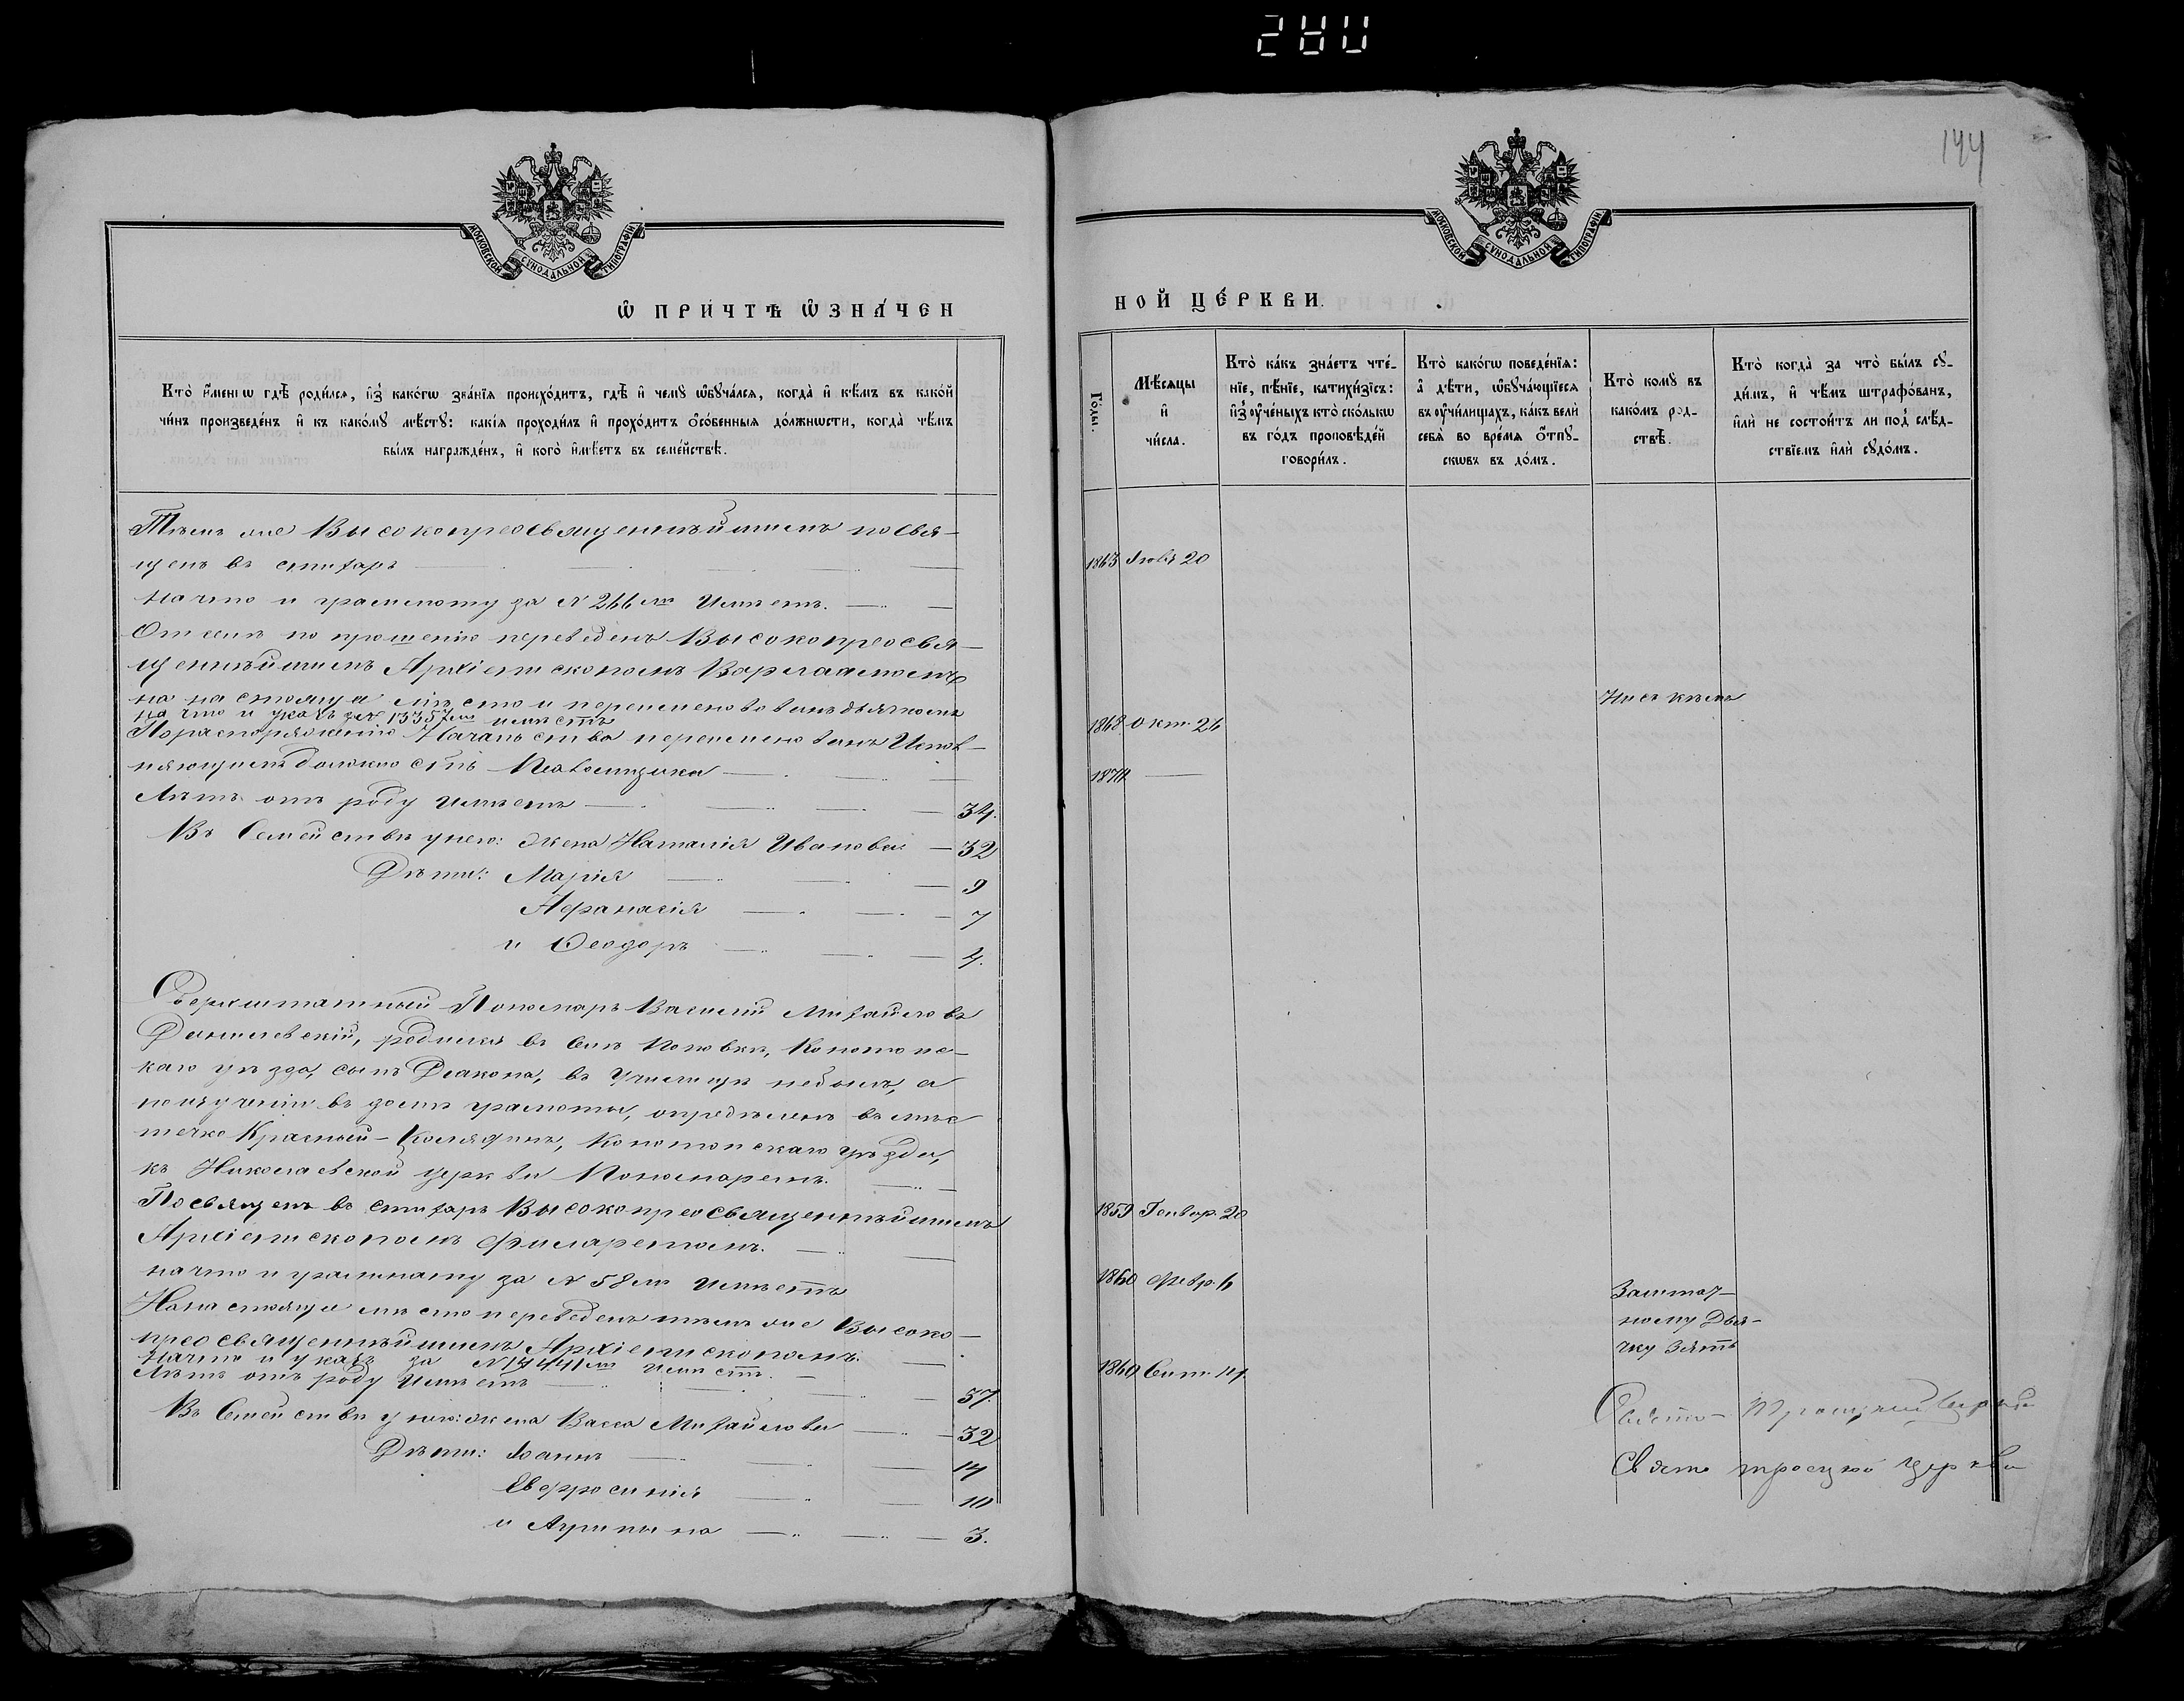 280
144
МОСКОВСКОЙ СѴНОДАЛЬНОЙ ТИПОГРАФІИ
МОСКОВСКОЙ СѴНОДАЛЬНОЙ ТИПОГРАФІИ
Ѡ ПРИ́ЧТѢ ѠЗНА́ЧЕН
НОЙ ЦЕ́РКВИ.
Кто̀ и҆́менїѡ гдѣ̀ роди́лся, и҆з̾ како́гѡ зва́нїя происхо́дитъ, гдѣ̀ и҆ чемꙋ̀ ѡ҆бꙋча́лся, когда̀ и҆ кѣ́мъ въ како́й
чи́нъ произведе́нъ и҆ къ како́мꙋ мѣ́стꙋ: какі́я проходи́лъ и҆ прохо́дитъ ѻ҆со́бенныя до́лжнѡсти, когда̀ чѣ́мъ
бы́лъ награжде́нъ, и҆ кого̀ и҆мѣ́етъ въ семе́йствѣ.
Тѣмъ же Высокопреосвященнѣйшимъ посвя-
щенъ въ стихарь
На что и грамоту за № 266м имѣетъ.
Отселѣ по прошенію переведенъ Высокопреосвя-
щеннѣйшимъ Архіепископомъ Варлаамомъ
на настояще мѣсто и переименованъ дьячкомъ
на что и указъ за № 13357м имѣетъ
По распоряженію Начальства переименованъ Испол-
няющимъ должность Псаломщика
Лѣтъ отъ роду имѣетъ 34.
Въ Семействѣ у него: жена Наталія Иванова 32
Дѣти: Марія 9
Афанасія 7
и Ѳеодоръ 4.
Сверхштатный Пономарь Василій Михайловъ
Данилевскій, родился въ селѣ Поповкѣ, Конотопс-
каго уѣзда, сынъ Діакона, въ Училищѣ небылъ, а
по изученіи въ домѣ грамоты, опредѣленъ въ мѣс
течко Красный-Колядинъ, Конотопскаго уѣзда,
къ Николаевской церкви Пономаремъ.
Посвященъ въ стихарь Высокопреосвященнѣйшимъ
Архіепископомъ Филаретомъ.
на что и грамоту за № 58м имѣетъ
На настояще мѣсто переведенъ тѣмъ же Высоко-
преосвященнѣйшимъ Архіепископомъ.
на что и указъ за № 14441м имѣетъ.
Лѣтъ отъ роду имѣетъ 37.
Въ Семействѣ у него: жена Васса Михайлова 32
Дѣти: Іоаннъ 14
Евфросинія 10
и Агрипина 3.
Го́ды.
Мѣ́сяцы
и҆
чи́сла.
Кто̀ ка́къ зна́етъ чте́-
нїе, пѣ́нїе, катихи́зїсъ:
и҆з̾ ᲂу҆че́ныхъ кто̀ ско́лькѡ
въ го́дъ проповѣ́дей
говори́лъ.
Кто̀ како́гѡ поведе́нїя:
а҆ дѣ́ти, ѡ҆бꙋча́ющїеся
въ ᲂу҆чи́лищахъ, ка́къ велѝ
себя̀ во вре́мя ѻ҆тпꙋ-
скѡвъ въ до́мъ.
Кто̀ комꙋ̀ въ
како́мъ род-
ствѣ̀.
Кто̀ когда̀ за что̀ бы́лъ сꙋ-
ди́мъ, и҆ чѣ́мъ штрафо́ванъ,
и҆лѝ не состои́тъ ли под̾ слѣ́д-
ствїемъ и҆лѝ сꙋдо́мъ.
1863 Іюля 20
Ни съ кѣмъ
1868 Окт. 26
1874
1859 Генвар. 20
1860 Февр. 6
Заштат-
ному Дья-
чку Зять
1860 Сент. 14
Свято-Троицкой Церкви
Свято троецкой церкви